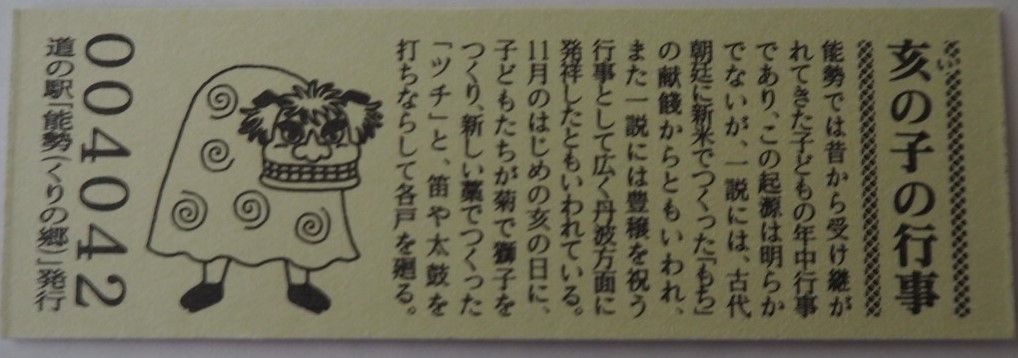 亥の子の行事
い
能勢では昔から受け継が
れてきた子どもの年中行事
であり、この起源は明らか
でないが、一説には、古代
朝廷に新米でつくった「もち」
の献餞からともいわれ、
また一説には豊穣を祝う
行事として広く丹波方面に
発祥したともいわれている。
11月のはじめの亥の日に、
子どもたちが菊で獅子を
つくり、新しい藁でつくった
「ツチ」と、笛や太鼓を
打ちならして各戸を廻る。
004042
道の駅「能勢(くりの郷)」発行